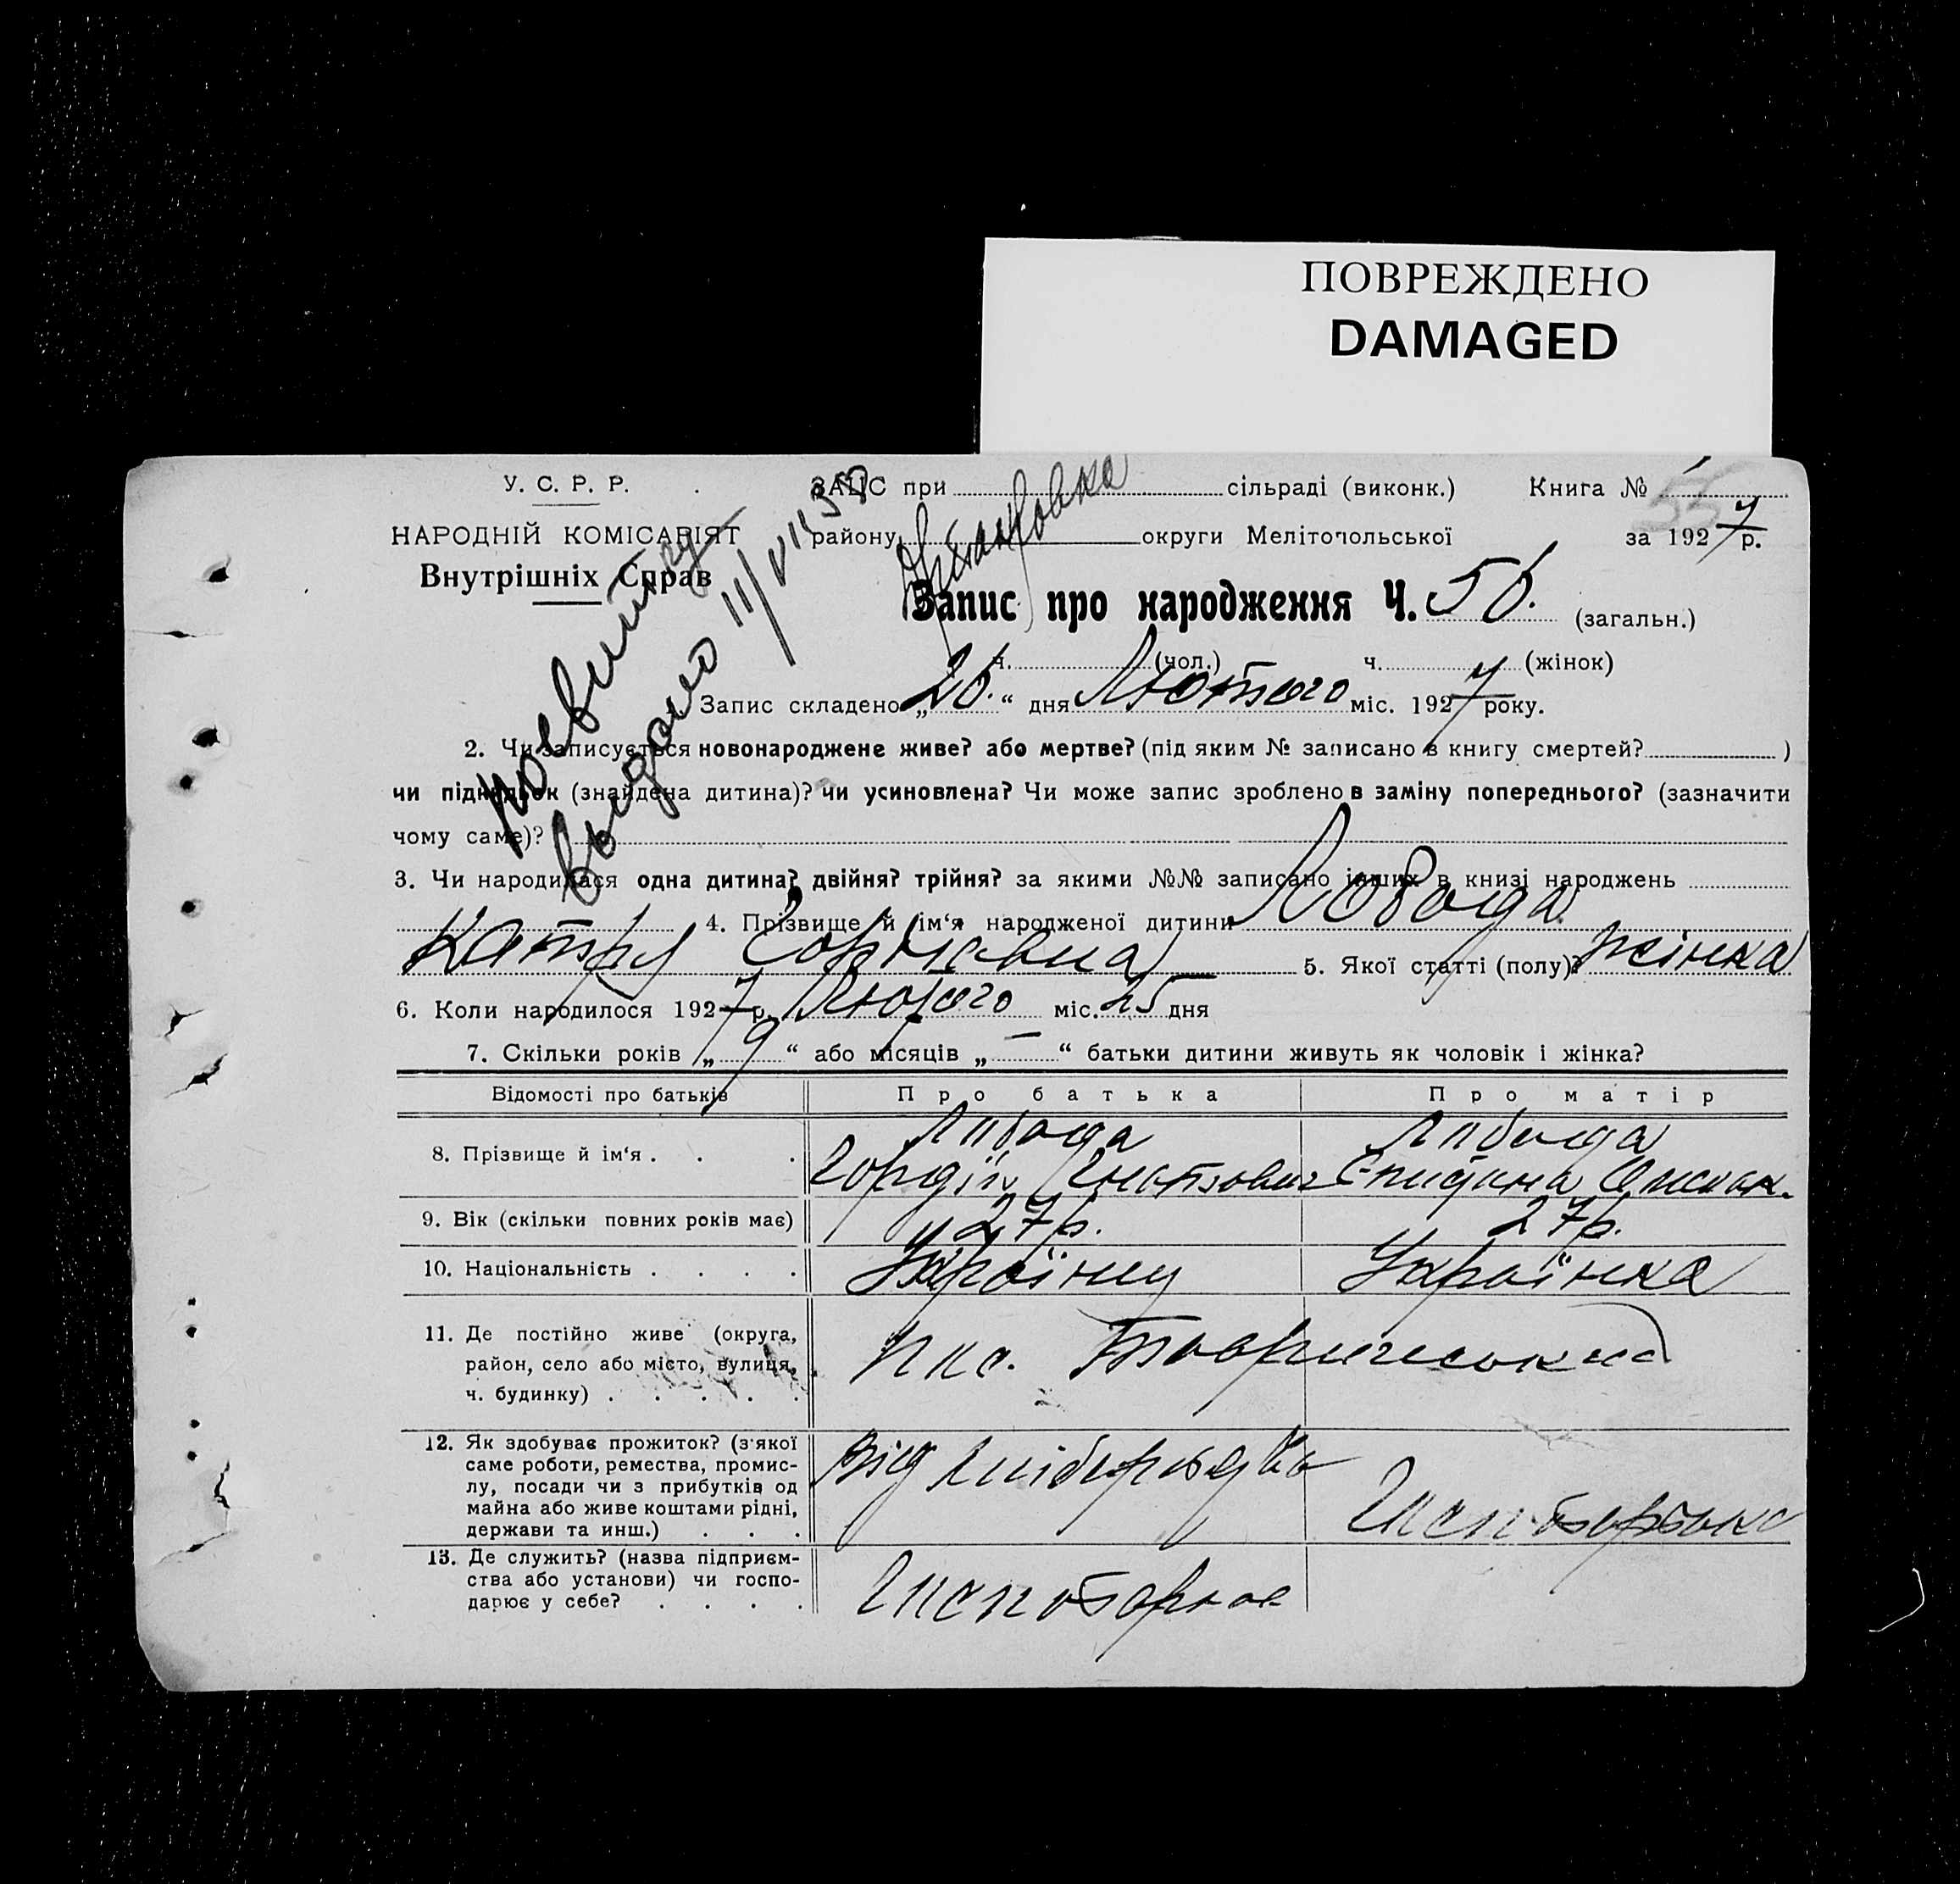 ПОВРЕЖДЕНО
DAMAGED
У. С. Р. Р.
ЗАЦС при сільраді (виконк.) Книга №
НАРОДНІЙ КОМІСАРІЯТ
району округи Мелітопольської за 1927 р.
Внутрішніх Справ
Запис про народження Ч. 56. (загальн.)
ч. (чол.) ч. (жінок)
Запис складено „26.“ дня Лютого міс. 1927 року.
2. Чи записується новонароджене живе? або мертве? (під яким № записано в книгу смертей? )
чи підкидьок (знайдена дитина)? чи усиновлена? Чи може запис зроблено в заміну попереднього? (зазначити
чому саме)?
3. Чи народилася одна дитина? двійня? трійня? за якими №№ записано інших в книзі народжень
4. Прізвище й ім‘я народженої дитини Лобода
Катря 5. Якої статті (полу)? жінка
6. Коли народилося 1927 р. Лютого міс. 25 дня
7. Скільки років „ 9 “ або місяців „ — “ батьки дитини живуть як чоловік і жінка?
Відомості про батьків Про батька Про матір
Лобода Лобода
8. Прізвище й ім‘я . . . Гордій Гнатович
9. Вік (скільки повних років має) 27р. 27р.
10. Національність . . . . Українец Українка
11. Де постійно живе (округа,
район, село або місто, вулиця,
ч. будинку) . . . . .
12. Як здобуває прожиток? (з якої
саме роботи, ремества, промис-
лу, посади чи з прибутків од
майна або живе коштами рідні,
держави та инш.) . . .
Від хліборобства
13. Де служить? (назва підприєм-
ства або установи) чи госпо-
дарює у себе? . . . .
выдано 11/VII